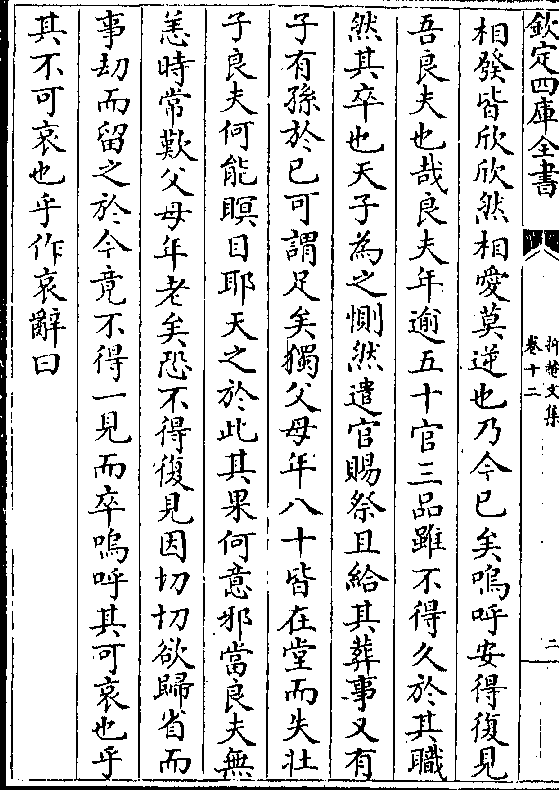 欽定四庫全書
卷十二
二
相發皆欣欣然相愛莫逆也乃今已矣嗚呼安得復見
吾良夫也哉良夫年逾五十官三品雖不得久於其職
然其卒也天子為之惻然遣官賜祭且給其葬事又有
子有孫於已可謂足矣獨父母年八十皆在堂而失壯
子良夫何能瞑目耶天之於此其果何意邪當良夫無
恙時常歎父母年老矣恐不得復見因切切欲歸省而
事劫而留之於今竟不得一見而卒嗚呼其可哀也乎
其不可哀也乎作哀辭曰